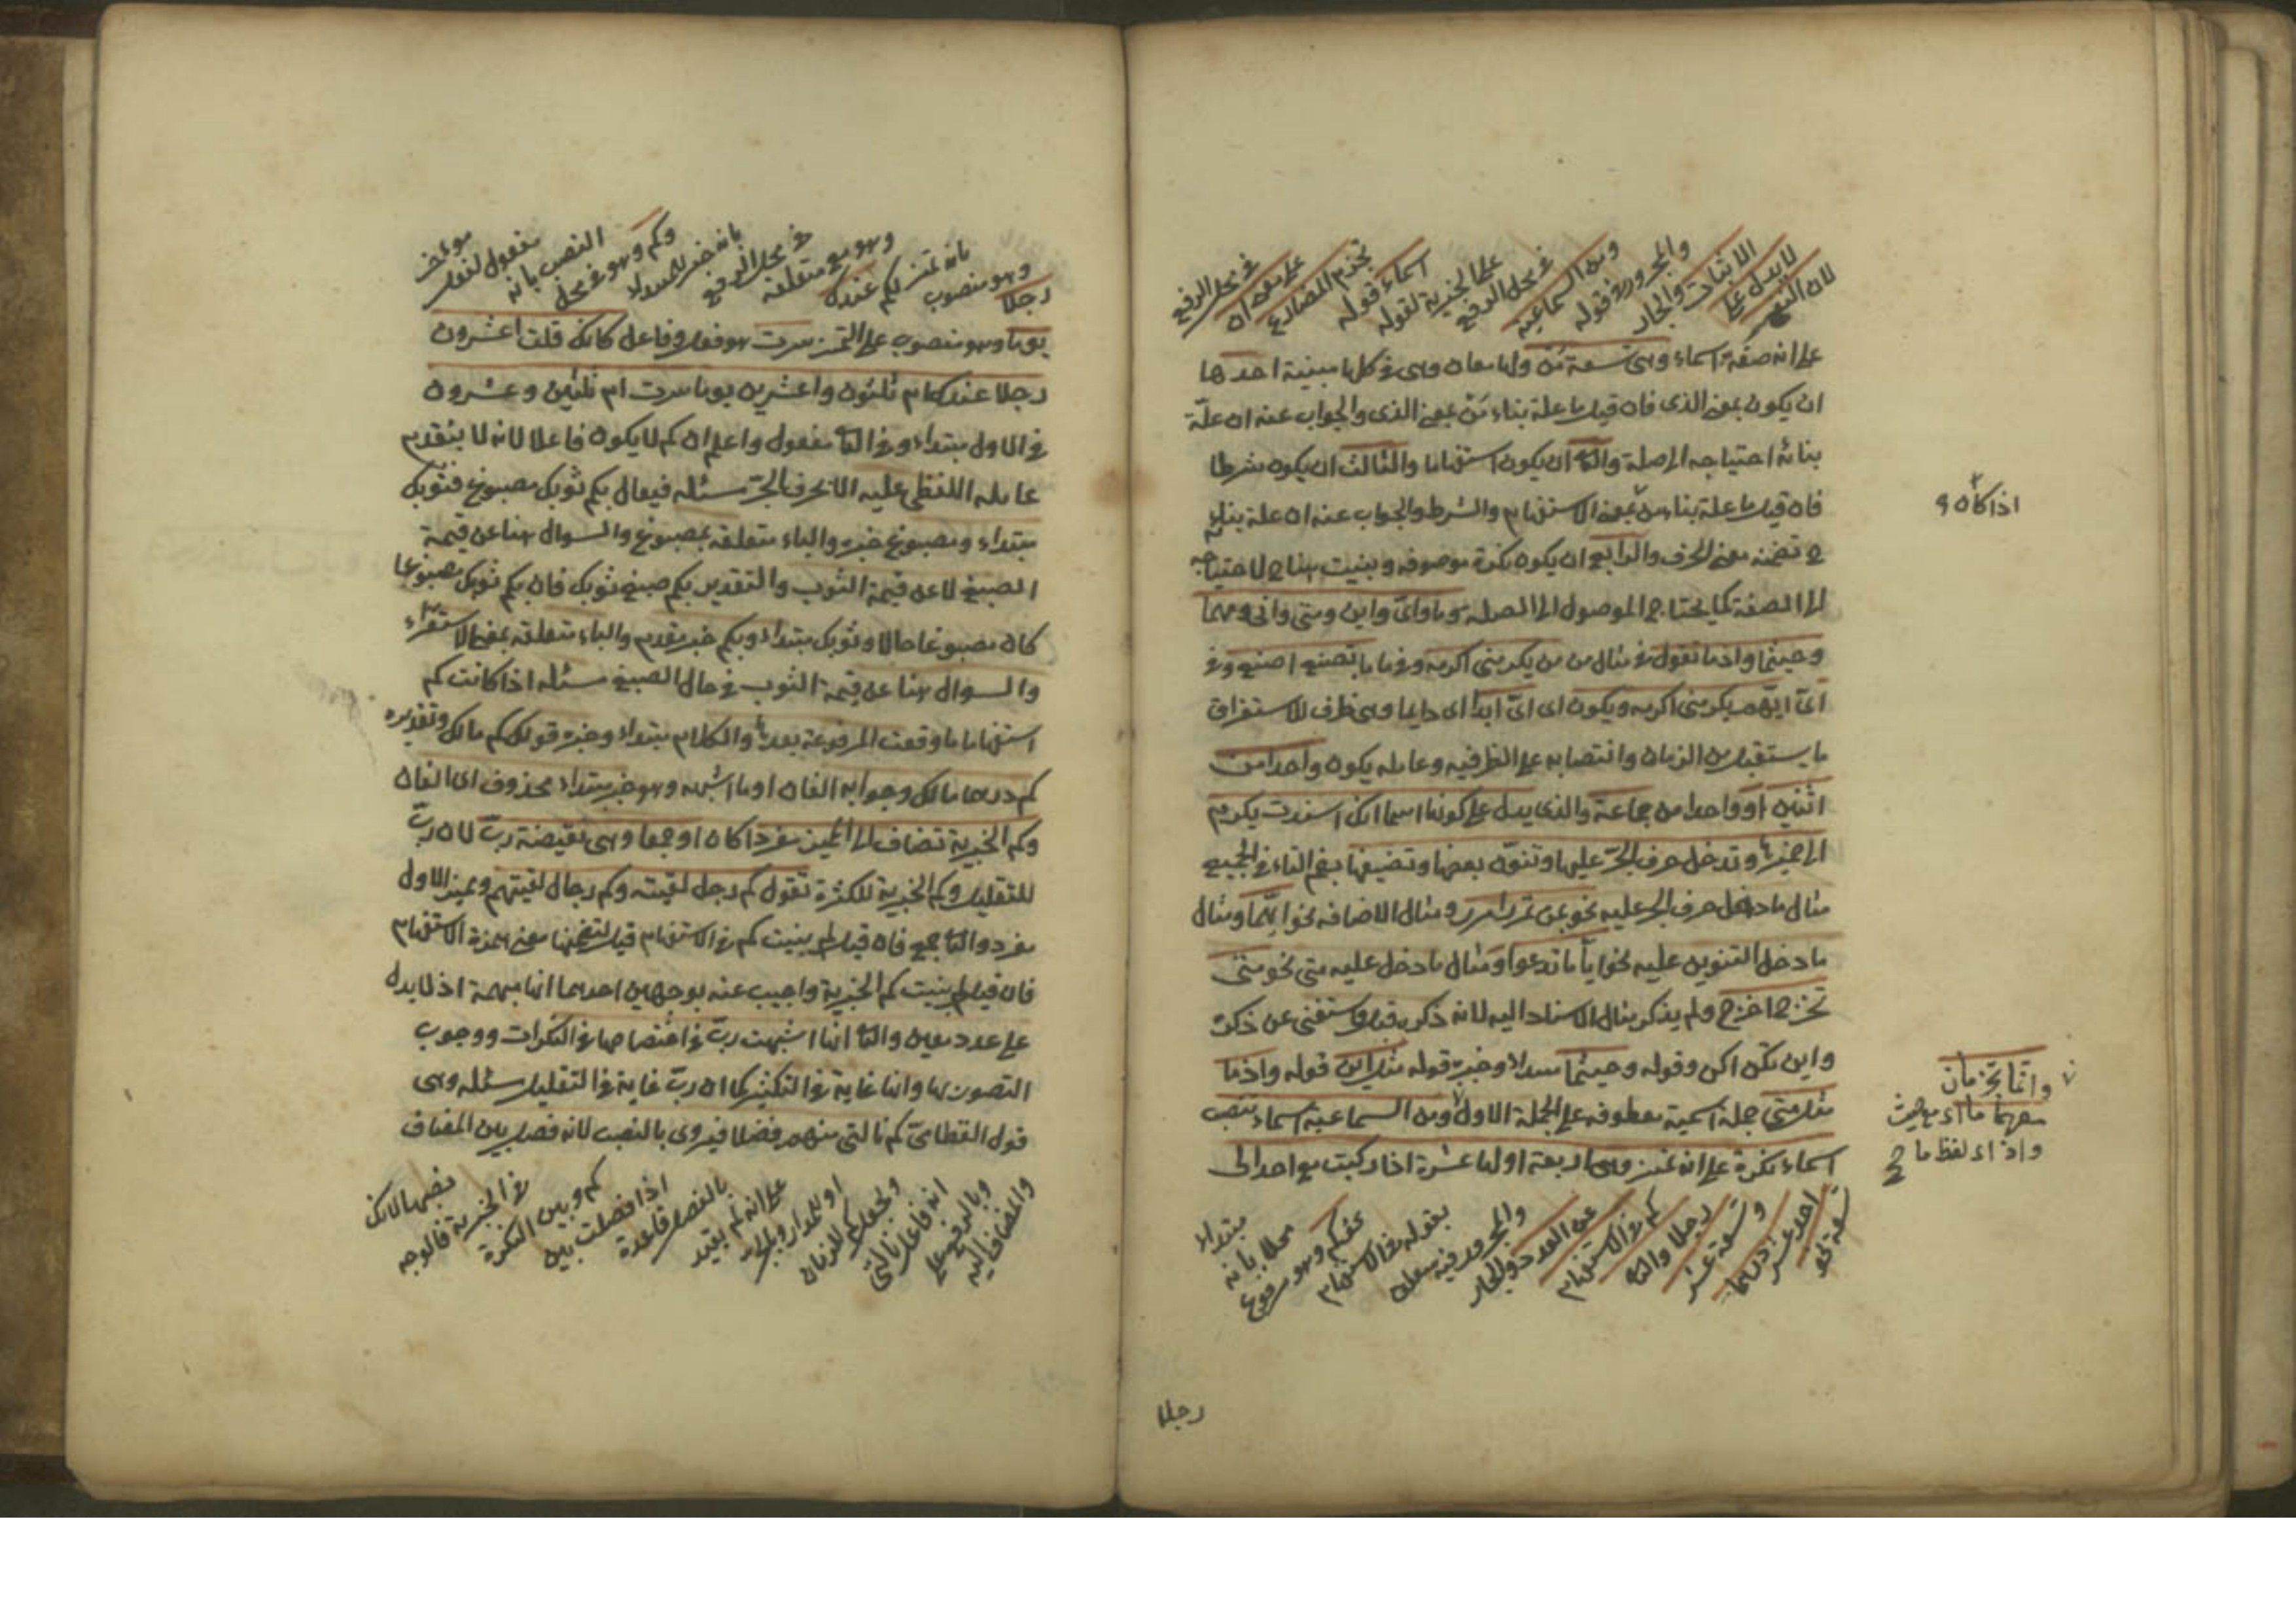 لان النفى
لا يدل على
الاثبات والجار
والمجرور فى قوله
ومن السماعية
فى محل الرفع
على الخبرية لقوله
اسماء قوله
تجزم المضارع
على معنى ان
فى محل الرفع
على انه صفة اسماء وهى تسعة من ولها معان وهى فى كلها مبنية احدها
ان يكون بمعنى الذى فان قيل ما علة بناء من بمعنى الذى والجواب عنه ان علّة
بنائه احتياجه الى صلة والثا ان يكون استفهاما والثالث ان يكون شرطا
فان قيل ما علة بناء من بمعنى الاستفهام والشرط والجواب عنه ان علة بنائه
ح تضمنه معنى الحرف والرابع ان يكون نكرة موصوفه وبنيت هنا ح لاحتياجه
الى الصفة كما يحتاج الموصول الى الصله وما واىّ واين ومتى وانى ومهما
وحيثما واذما تقول فى مثال من من يكرمنى اكرمه وفى ما ما تصنع اصنع وفى
اىّ ايّهم يكرمنى اكرمه ويكون اى اىّ ابدا اى دايما وهى ظرف للاستغراق
ما يستقبل من الزمان وانتصابه على الظرفيه وعامله يكون واحدا من
اثنين او واحدا من جماعة والذى يدل على كونها اسما انك اسندت يكرم
الى ضميرها وتدخل حرف الجرّ عليها وتنوّن بعضها وتضيفها بضم التاء فى الجميع
مثال ما دخل حرف الجر عليه نحو بمن تمرر امرر ومثال الاضافه نحو ايّهما ومثال
ما دخل التنوين عليه نحو ايّا ما تدعوا ومثال ما دخل عليه متى نحو متى
تخرج اخرج ولم يذكر مثال الاسناد اليه لانه ذكره قبل واستغنى عن ذكره
واين تكن اكن وقوله وحيثما مبتداء وخبره قوله مثل اين قوله واذما
مثل متى جملة اسمية معطوفه على الجملة الاولى ومن السماعية اسماء تنصب
اسماء نكرة على انه تمييز وهى اربعة اولها عشرة اذا ركبت مع احد الى
تسعة نحو
احد عشر درهما
وتسعة عشر
رجلا والثا
كم فى الاستفهام
عن العدد والجار
والمجرور فيه متعلق
بقوله فى الاستفهام
فكم وهو مرفوع
محلا بانه
مبتداء
اذا كان
وانما تجزمان
مهما ما اى مع حيث
واذ اى لفظ ما
رجلا
رجلا
وهو منصوب
بانه تميز لكم
عندك
وهو مع متعلقه
فى محل الرفع
بانه خبر للمبتداء
وكم وهو فى محل
النصب بانه
مفعول لفعل
موخر
يوما وهو منصوب على التميز سرت هو فعل وفاعل كانك قلت اعشرون
رجلا عندك ام ثلثون واعشرين يوما سرت ام ثلثين وعشرون
فى الاول مبتداء وفى الثا مفعول واعلم ان كم لا يكون فاعلا لانه لا يتقدم
عامله اللفظى عليه الا بحرف الجرّ مسئله فيقال بكم ثوبك مصبوغ فثوبك
مبتداء ومصبوغ خبره والباء متعلقه بمصبوغ والسوال هنا عن قيمة
الصبغ لا عن قيمة الثوب والتقدير بكم صبغ ثوبك فان بكم ثوبك مصبوغا
كان مصبوغا حالا وثوبك مبتداء وبكم خبر مقدم والباء متعلقه بمعنى الاستقرار
والسوال هنا عن قيمة الثوب فى حال الصبغ مسئله اذا كانت كم
استفهاما ما وقعت المرفوعة بعدها والكلام مبتداء وخبره قولك كم مالك وتقديره
كم درهما مالك وجوابه الفان او ما اشبهه وهو خبر مبتداء محذوف اى الفان
وكم الخبرية تضاف الى المميز مفردا كان او جمعا وهى نقيضة ربّ لان ربّ
للتقليل وكم الخبرية للكثرة تقول كم رجل لقيته وكم رجال لقيتهم ومميز الاول
مفرد والثا جمع فان قيل لم بنيت كم فى الاستفهام قيل لتضمنها معنى همزة الاستفهام
فان قيل لم بنيت كم الخبرية واجيب عنه بوجهين احدهما انها مبهمة اذ لا يدل
على عدد معين والثا انها اشبهت ربّ فى اختصاصها فى النكرات ووجوب
التصدر لها وانها غاية فى التكثير كما ان ربّ غاية فى التقليل مسئله وهى
قول القطامىّ كم نالنى منهم فضلا فيروى بالنصب لانه فصل بين المضاف
والمضاف اليه
وبالرفع على
انه فاعل نالنى
وتجعل كم للزمان
او للمدار وبالجر
على انه لم يعتد
بالفصل قاعدة
اذا فصلت بين
كم وبين النكرة
فى الخبرية فالوجه
نصبها لانك